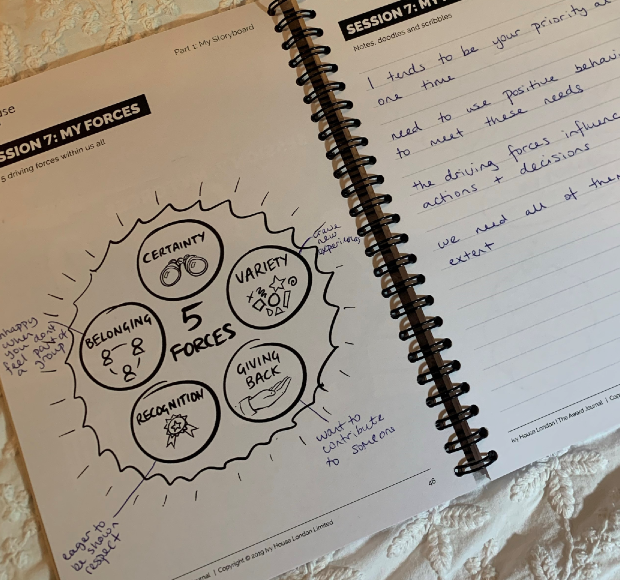 Part 1: My Storyboard
SESSION 7: MY FORCES
5 driving forces within us all
CERTAINTY
VARIETY
BELONGING
5
FORCES
GIVING
BACK
RECOGNITION
crave
new
experiences
unhappy
when
you don't
feel part of
a group
want to
contribute
to someone
eager to
be shown
respect
46
| Copyright © 2019 Ivy House London Limited
SESSION 7: MY
Notes, doodles and scribbles
1 tends to be your priority at
one time
need to use positive
to meet these needs
the driving forces
actions + decisions
we need all of
extent
Ivy House London | The Award Journal |